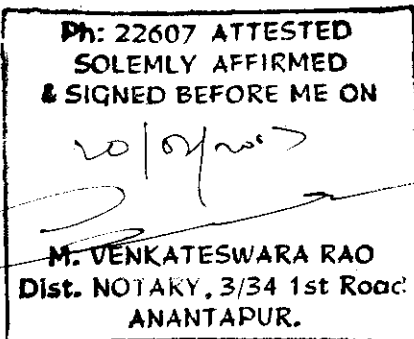 Ph: 22607 ATTESTED
SOLEMLY AFFIRMED
& SIGNED BEFORE ME ON
M. VENKATESWARA RAO
Dist. NOTARY, 3/34 1st Road
ANANTAPUR.